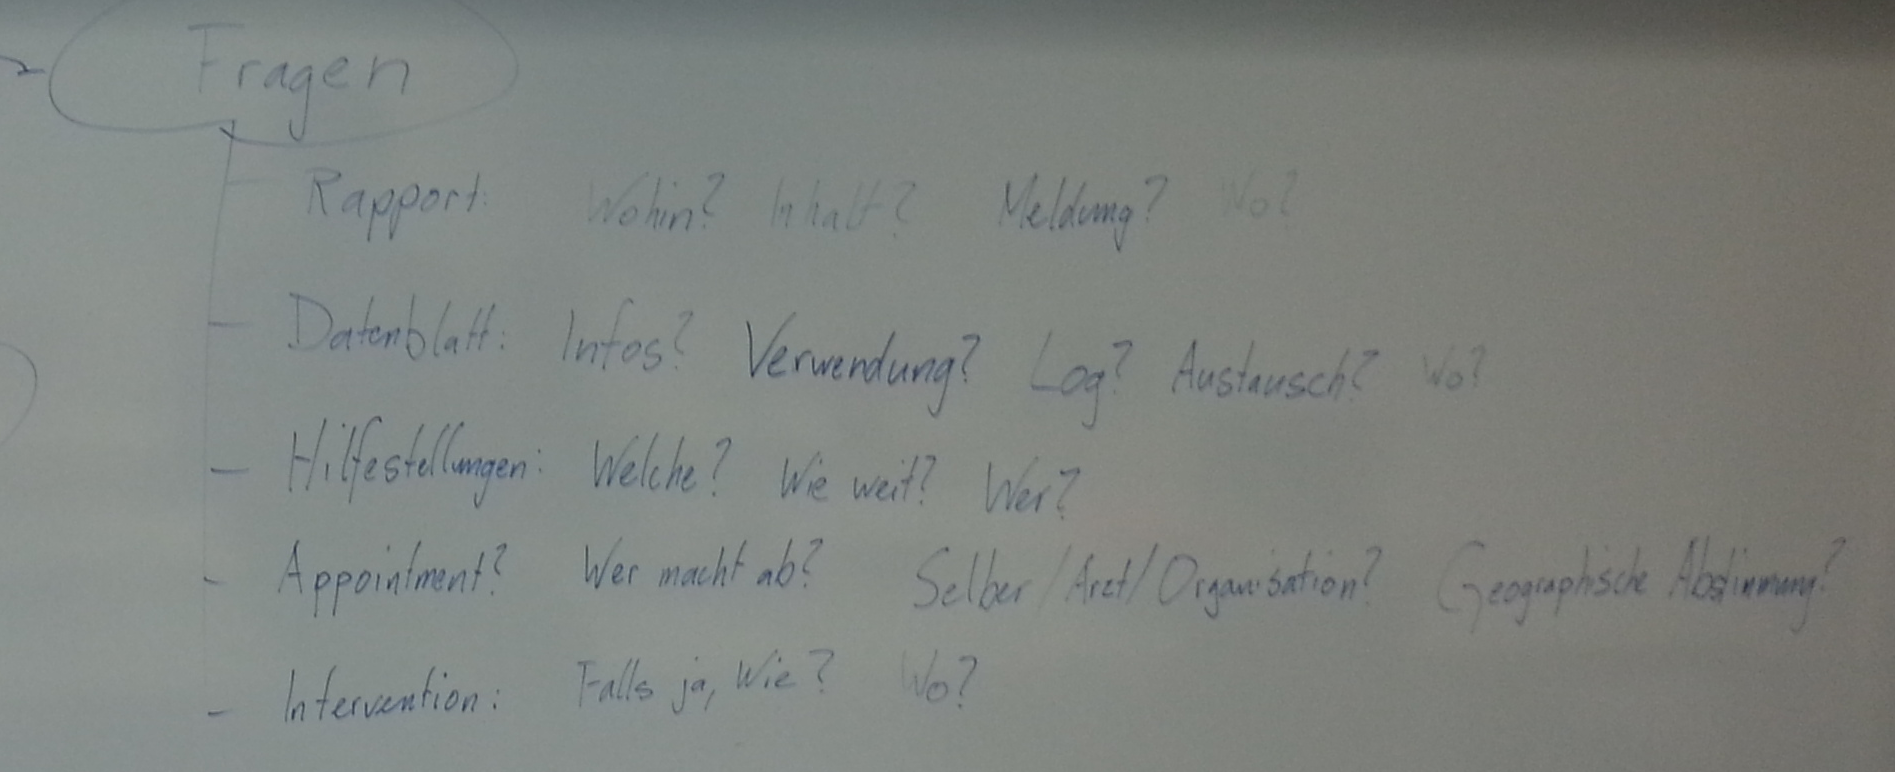 Fragen
- Rapport: Wohin? Inhalt? Meldung? Wo?
- Datenblatt: Infos? Verwendung? Log? Austausch? Wo?
- Hilfestellungen: Welche? Wie weit? Wer?
- Appointment? Wer macht ab? Selber/Arzt/Organisation? Geographische Abstimmung?
- Intervention: Falls ja, Wie? Wo?